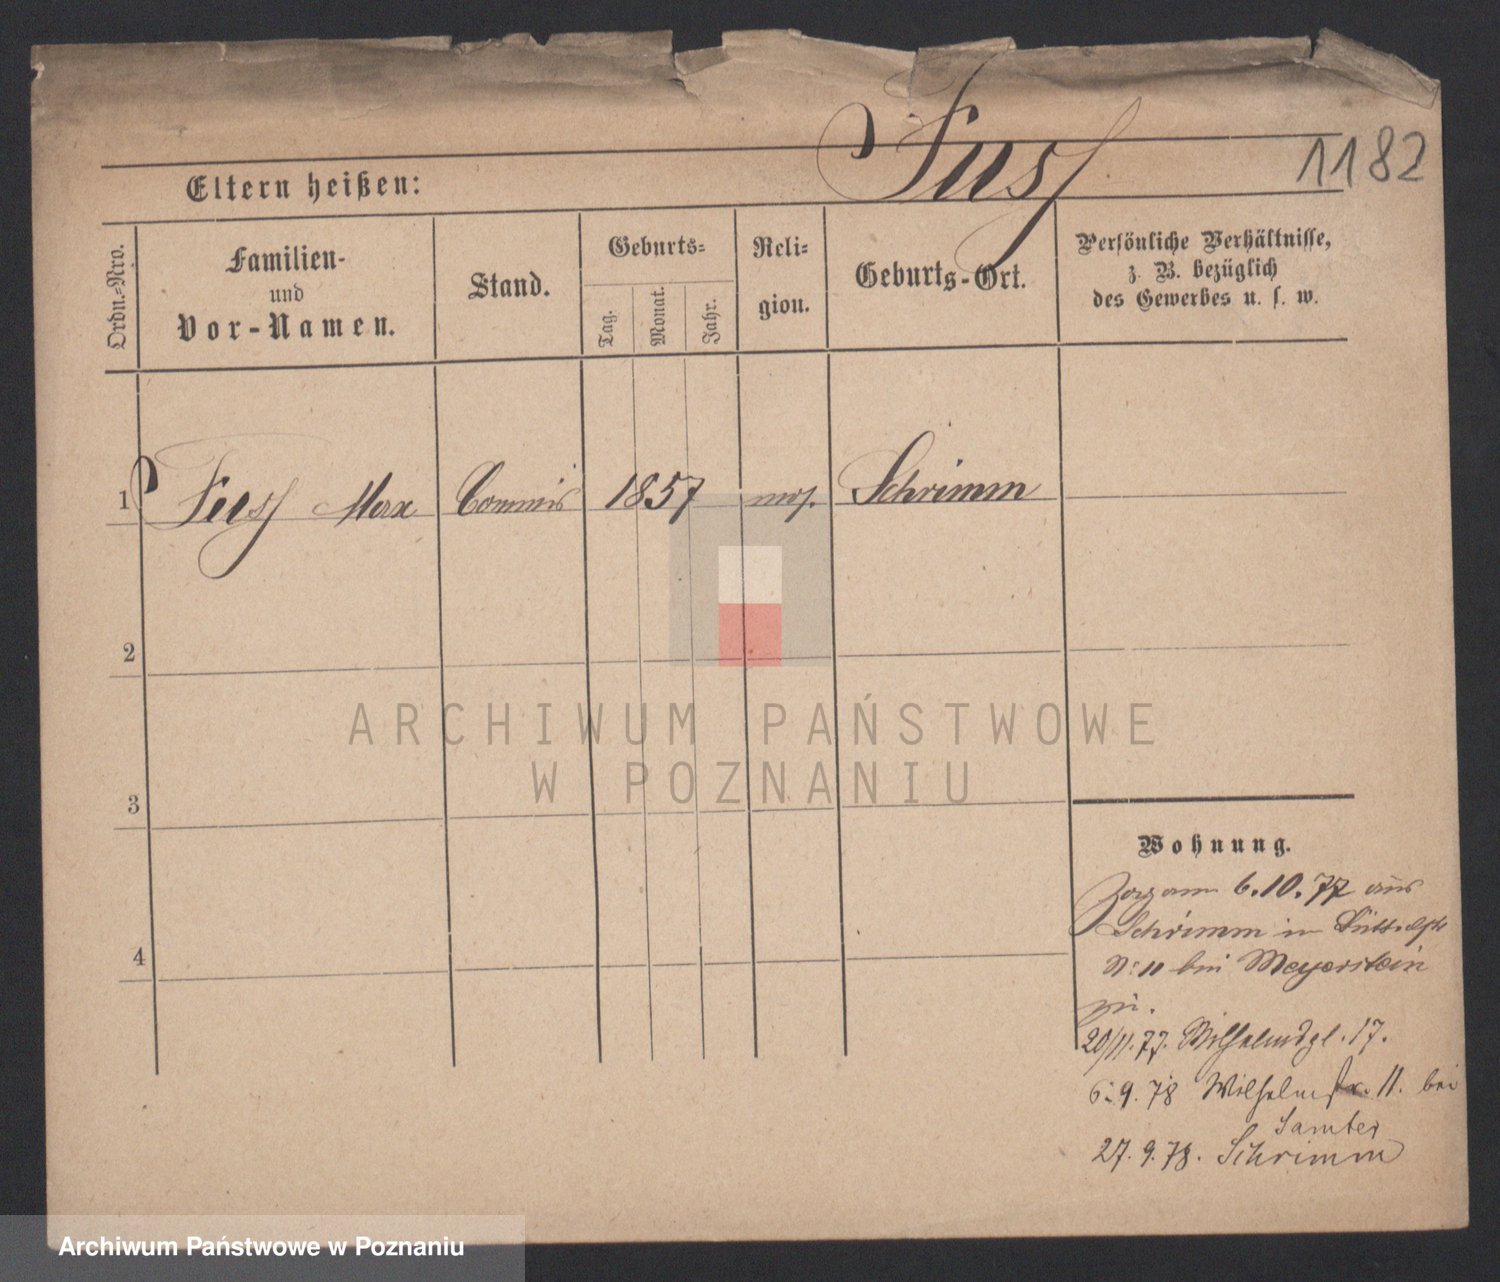 Fuss
1182
Eltern heißen:
Ordn.-Nro.
Familien-
und
Vor-Namen.
Stand.
Geburts-
Tag.
Monat.
Jahr.
Reli-
gion.
Geburts-Ort.
Persönliche Verhältnisse,
z. B. bezüglich
des Gewerbes u. s. w.
1 Fuss Max Commis 1857 mos. Schrimm
2
3
4
ARCHIWUM PAŃSTWOWE
W POZNANIU
Wohnung.
Zog am 6.10.77 aus
Schrimm in
N: 11 bei Meyerstein
zu.
20/11.77. Wilhelmspl. 17.
6.9.78 Wilhelmstr. 11. bei
Samter
27.9.78. Schrimm
Archiwum Państwowe w Poznaniu